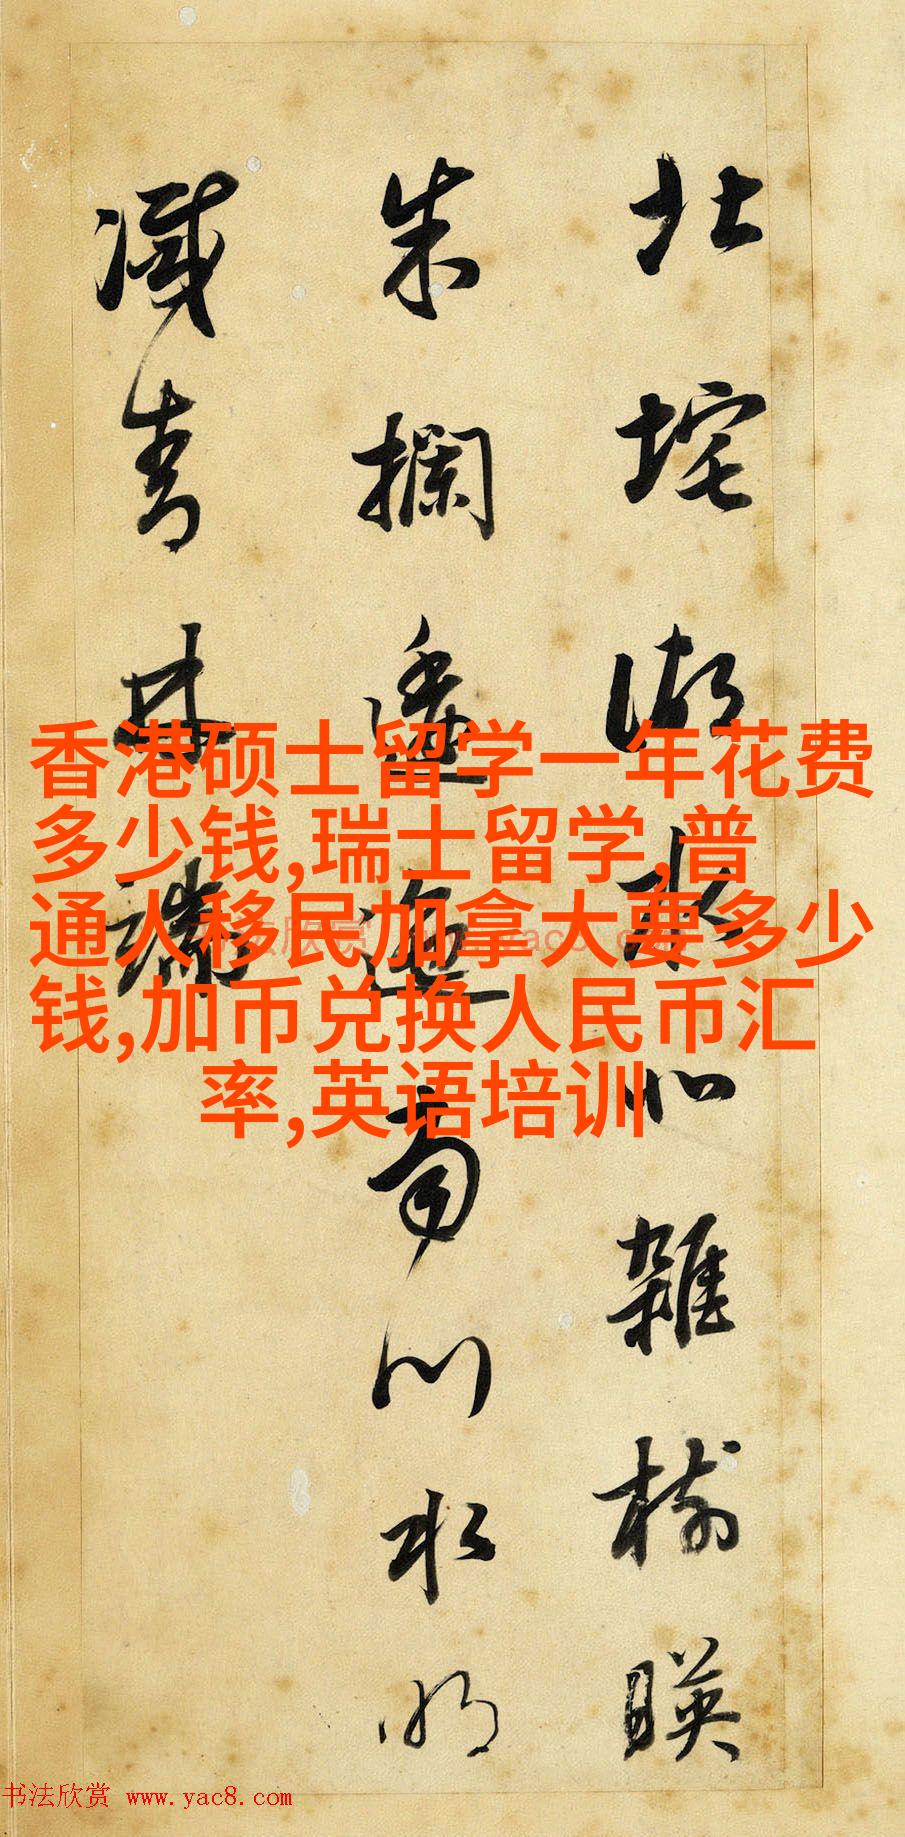 北垞湖水北雜樹暎
朱欄逶迤南川水明
滅青林端
香港硕士留学一年花费
多少钱,瑞士留学,普
通人移民加拿大要多少
钱,加币兑换人民币汇
率,英语培训
书法欣赏 www.yac8.com